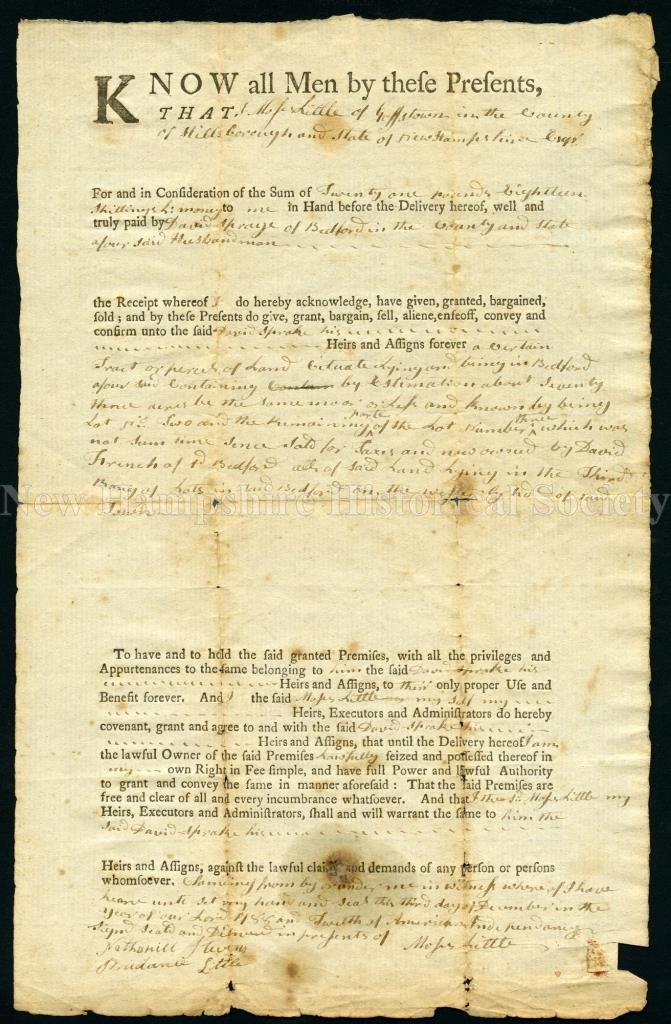 KNOW all Men by theſe Preſents,
THAT I Moſes Little of Goffstown in the County
of Hillsborough and State of New Hampshire Esqr
For and in Conſideration of the Sum of Twenty one pounds Eighteen
Shillings L: money to me in Hand before the Delivery hereof, well and
truly paid by David Sprage of Bedford in the County and State
afour said Husbandman
the Receipt whereof I do hereby acknowledge, have given, granted, bargained,
ſold; and by theſe Preſents do give, grant, bargain, ſell, aliene, enfeoff, convey and
confirm unto the ſaid David Sprake his
Heirs and Aſſigns forever a Certain
Tract or percel of Land Cituate Lying and being in Bedford
afour said Containing by Estimation about Seventy
three acres be the same moor or Less and known by being
Lot No. Two and the Remaining Parte of the Lot Number three which was
not Sum time Sence Sold for Taxes and now owned by David
French of sd Bedford all of said Land Lying in the Third
Rang of Lots in said Bedford on the westerly Side of said
Town
New Hampshire Historical Society
To have and to hold the ſaid granted Premiſes, with all the privileges and
Appurtenances to the ſame belonging to him the ſaid David Sprake his
Heirs and Aſſigns, to their only proper Uſe and
Benefit forever. And I the ſaid Moſes Little my self my
Heirs, Executors and Adminiſtrators do hereby
covenant, grant and agree to and with the ſaid David Sprake his
Heirs and Aſſigns, that until the Delivery hereof I am
the lawful Owner of the ſaid Premiſes Lawfully ſeized and poſſeſſed thereof in
my own Right in Fee ſimple, and have full Power and lawful Authority
to grant and convey the ſame in manner aforeſaid: That the ſaid Premiſes are
free and clear of all and every incumbrance whatſoever. And that I the sd. Moſes Little my
Heirs, Executors and Adminiſtrators, ſhall and will warrant the ſame to him the
said David Sprake his
Heirs and Aſſigns, againſt the lawful claims and demands of any perſon or perſons
whomſoever. Claiming from by or under me in witness where of I have
heare unto set my hand and Seal this third day of December in the
Year of our Lord 1788 and Twelth of American Independancy
Signd Seald and Delivered in presents of Moſes Little
Nathaniell Stevens
Prudance Little